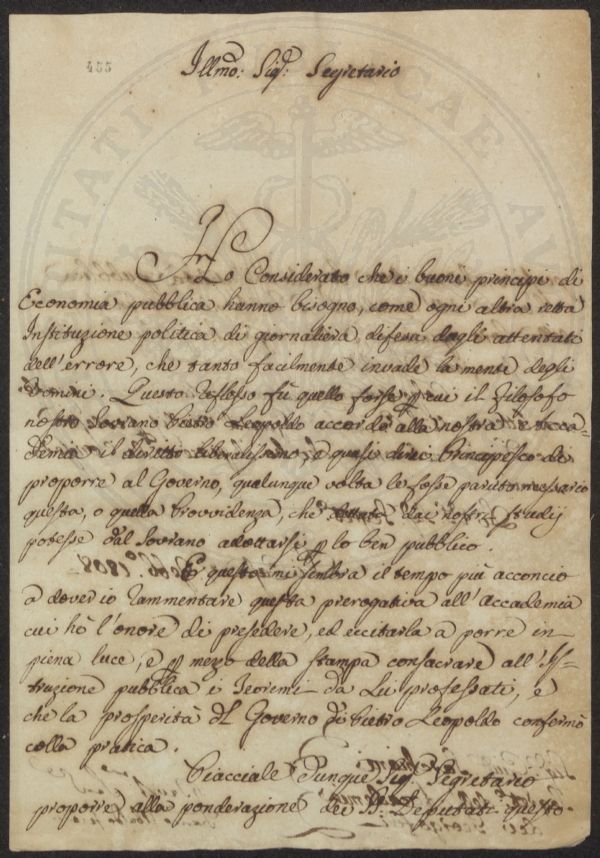 455
Illmo: Sigr: Segretario
Ho Considerato che i buoni principi di
Economia pubblica hanno bisogno, come ogni altra retta
Instituzione politica di giornaliera difesa dagli attentati
dell'errore, che tanto facilmente invade la mente degli
Uomini. Questo reflesso fù quello forse p cui il Filosofo
nostro Sovrano Pietro Leopoldo accordò alla nostra Acca=
demia il diritto liberalissimo, e quasi direi Principesco di
proporre al Governo, qualunque volta le fosse paruta necessario
questa, o quella Provvidenza, che dai nostri studij
potesse dal Sovrano adottarsi p lo ben pubblico.
E questo mi sembra il tempo più acconcio
a dover io rammentare questa prerogativa all'Accademia
cui hò l'onore di presedere, ed eccitarla a porre in
piena luce, e p mezzo della stampa consacrare all'Is=
truzione pubblica i Teoremi da Lei professati, e
che la prosperità del Governo di Pietro Leopoldo confermò
colla pratica.
Piacciale dunque Sigr Segretario
proporre alla ponderazione dei SS. Deputati questo